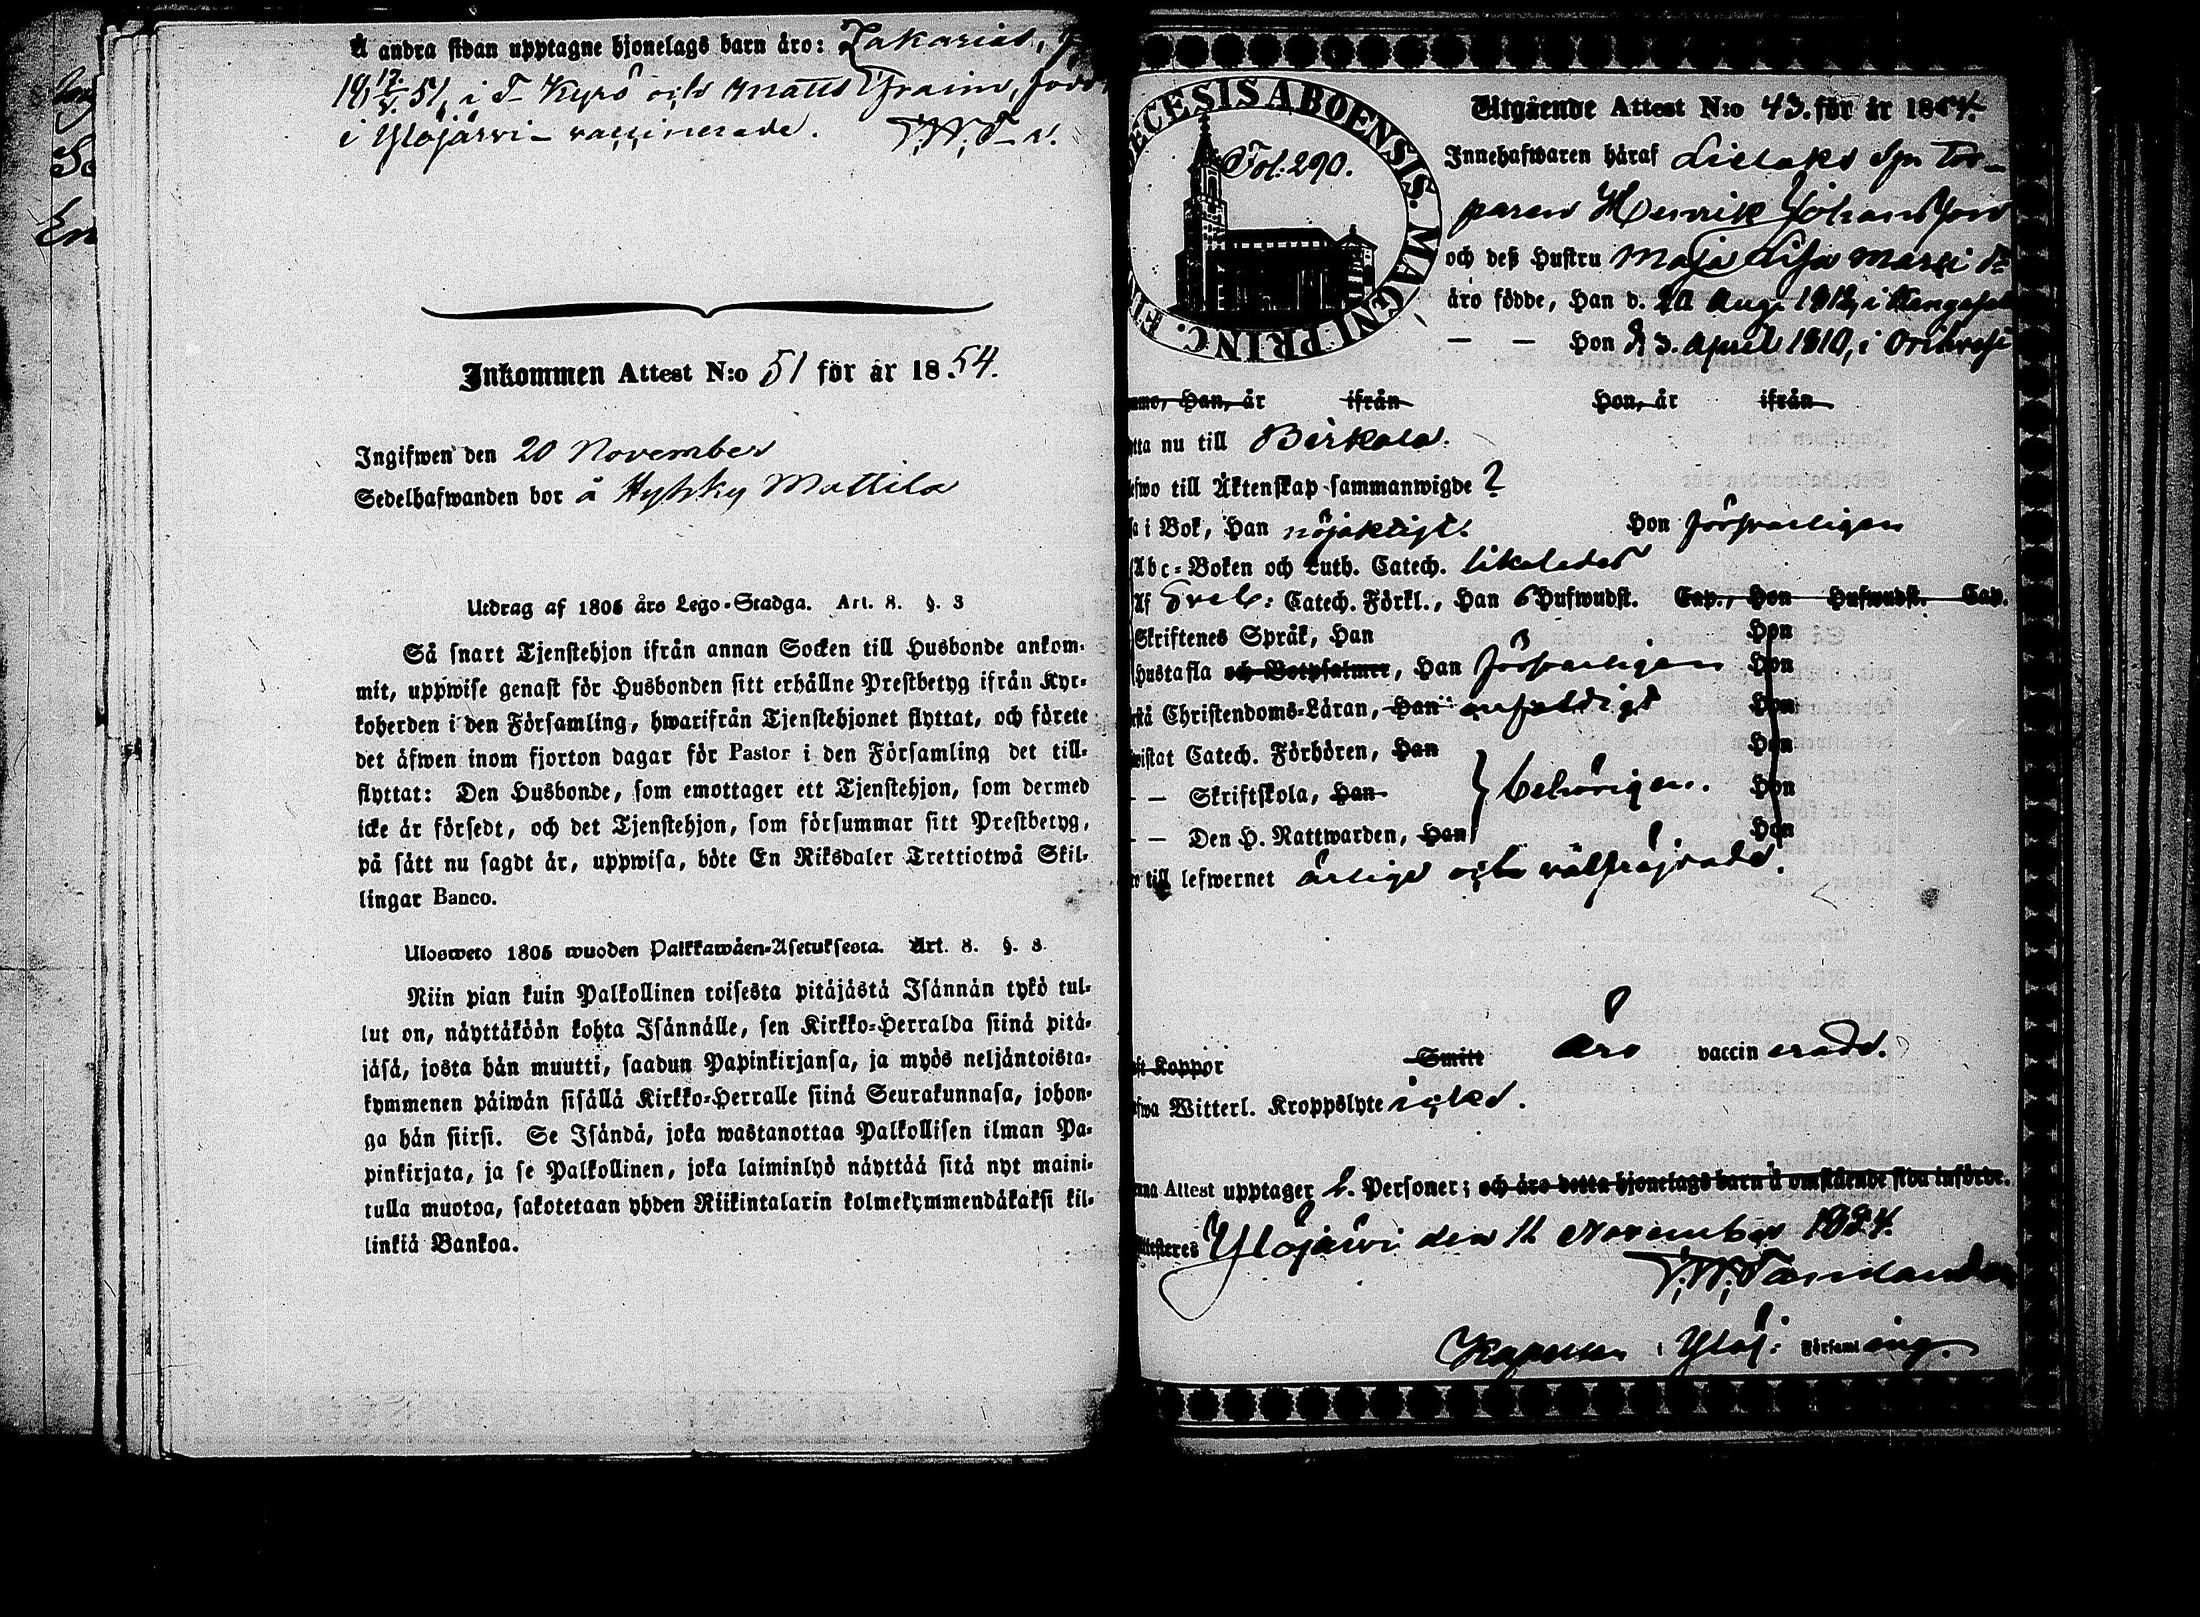 Å andra sidan upptagne hjonelags barn äro: Zakarias,
18 17/V 51, i T Kyrö och Matts Efraim, född
i Ylöjärvi – vaccinerade. F. W. T–r.
Inkommen Attest N:o 51 för år 1854.
Ingifwen den 20 November
Sedelhafwanden bor å Hyhky Mattila
Utdrag af 1805 års Lego-Stadga. Art. 8. §. 3
Så snart Tjenstehjon ifrån annan Socken till Husbonde ankom-
mit, uppwise genast för Husbonden sitt erhållne Prestbetyg ifrån Kyr-
koherden i den Församling, hwarifrån Tjenstehjonet flyttat, och förete
det äfwen inom fjorton dagar för Pastor i den Församling det till-
flyttat: Den Husbonde, som emottager ett Tjenstehjon, som dermed
icke är försedt, och det Tjenstehjon, som försummar sitt Prestbetyg,
på sätt nu sagdt är, uppwisa, böte En Riksdaler Trettiotwå Skil-
lingar Banco.
Ulosweto 1805 wuoden Palkkawäen-Asetuksesta. Art. 8. §. 3
Niin pian kuin Palkollinen toisesta pitäjästä Isännän tykö tul-
lut on, näyttäköön kohta Isännälle, sen Kirkko-Herralda siinä pitä-
jäsä, josta hän muutti, saadun Papinkirjansa, ja myös neljäntoista-
kymmenen päiwän sisällä Kirkko-Herralle siinä Seurakunnasa, johon-
ga hän siirsi. Se Isändä, joka wastanottaa Palkollisen ilman Pa-
pinkirjata, ja se Palkollinen, joka laiminlyö näyttää sitä nyt maini-
tulla muotoa, sakotetaan yhden Riikintalarin kolmekymmendäkaksi kil-
linkiä Bankoa.
ECESIS ABOENSIS. MAGNI PRINC. FI
Fol. 290.
Utgående Attest N:o 43. för år 1854.
Innehafwaren häraf Lielaks By Tor-
paren Henrik Johansson
och deß Hustru Maja Lisa Matti dr
äro födde, Han d. 20 Aug. 1812, i Kangasal
— — Hon d 3. April 1810, i Orihvesi
Han, år ifrån Hon, år ifrån
nu till Birkala.
till Äktenskap sammanwigde ?
i Bok, Han nöjaktigt. Hon försvarligen
Abc-Boken och Luth. Catech. likaledes
Af Sveb: Catech. Förkl., Han 6 Hufwudst. Cap., Hon Hufwudst. Cap.
Skriftenes Språk, Han Hon
Hustafla och Botpsalmer, Han försvarligen Hon
Christendoms-Läran, Han enfaldigt Hon
Catech. Förhören, Han Hon
— Skriftskola, Han behörigen. Hon
— Den H. Nattwarden, Han Hon
till lefwernet ärlige och välfräjdade.
Koppor Smitt äro vaccinerade.
Witterl. Kroppslyte icke.
Attest upptager 2. Personer; och äro detta hjonelags barn å omstående sida införde.
Ylöjärvi den 11 November 1854.
F. W. Tamlander
Kapellan i Ylöj: Församling.